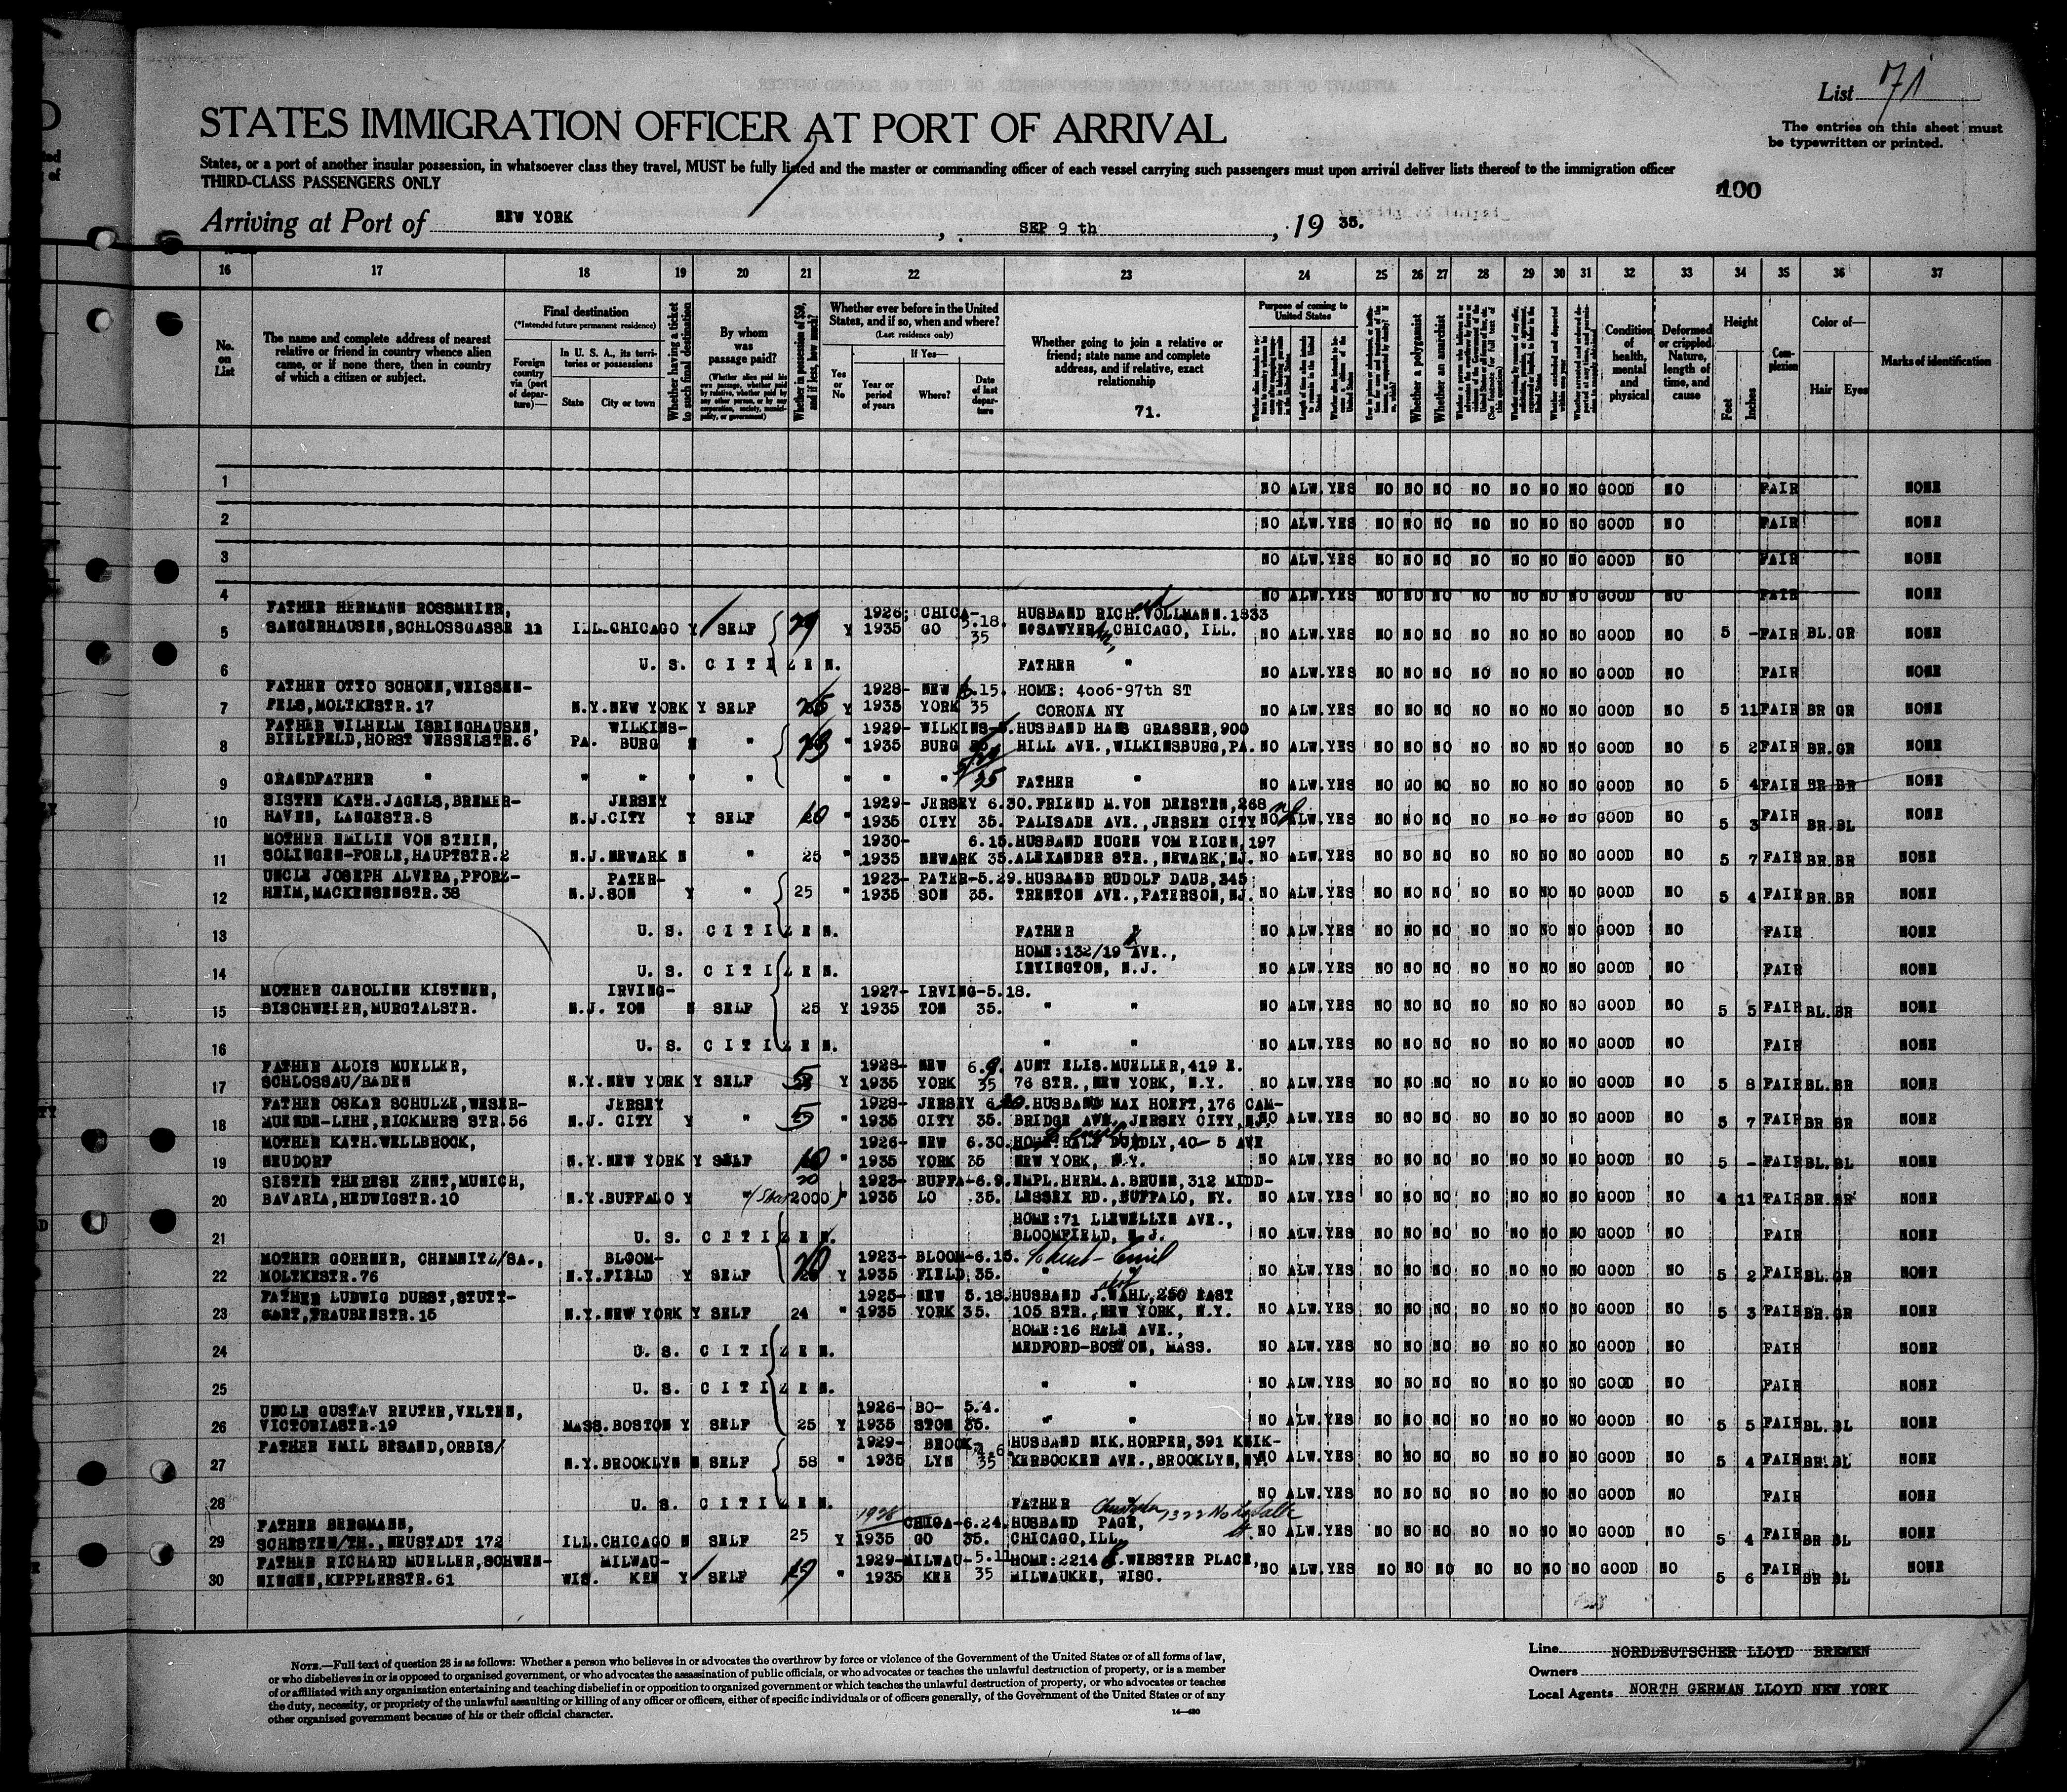 List 71
The entries on this sheet must
be typewritten or printed.
STATES IMMIGRATION OFFICER AT PORT OF ARRIVAL
States, or a port of another insular possession, in whatsoever class they travel, MUST be fully listed and the master or commanding officer of each vessel carrying such passengers must upon arrival deliver lists thereof to the immigration officer
THIRD-CLASS PASSENGERS ONLY
100
Arriving at Port of NEW YORK, SEP 9 th, 19 35.
16 17 18 19 20 21 22 23 24 25 26 27 28 29 30 31 32 33 34 35 36 37
No. on List
The name and complete address of nearest relative or friend in country whence alien came, or if none there, then in country of which a citizen or subject.
Final destination
(*Intended future permanent residence)
Foreign country via (port of departure)—
In U. S. A., its territories or possessions
State
City or town
Whether having a ticket to such final destination
By whom was passage paid?
(Whether alien paid his own passage, whether paid by relative, whether paid by any other person, or by any corporation, society, municipality, or government)
Whether in possession of $50, and if less, how much?
Whether ever before in the United States, and if so, when and where?
(Last residence only)
Yes or No
If Yes—
Year or period of years
Where?
Date of last departure
Whether going to join a relative or friend; state name and complete address, and if relative, exact relationship
71.
Purpose of coming to United States
Whether a polygamist
Whether an anarchist
Condition of health, mental and physical
Deformed or crippled. Nature, length of time, and cause
Height
Feet
Inches
Complexion
Color of—
Hair
Eyes
Marks of identification
1 NO ALW. YES NO NO NO NO NO NO NO GOOD NO FAIR NONE
2 NO ALW. YES NO NO NO NO NO NO NO GOOD NO FAIR NONE
3 NO ALW. YES NO NO NO NO NO NO NO GOOD NO FAIR NONE
4 NO ALW. YES NO NO NO NO NO NO NO GOOD NO FAIR NONE
FATHER HERMANN ROSSMEIER, 1926; CHICA- 5.18. HUSBAND RICH. VOLLMANN. 1833
5 SANGERHAUSEN, SCHLOSSGASSE 11 ILL. CHICAGO Y SELF 29 Y 1935 GO 35 No SAWYER CHICAGO, ILL. NO ALW. YES NO NO NO NO NO NO NO GOOD NO 5 - FAIR BL. GR NONE
6 U. S. CITIZEN. FATHER " NO ALW. YES NO NO NO NO NO NO NO GOOD NO FAIR NONE
FATHER OTTO SCHOEN, WEISSEN- 1928- NEW 6.15. HOME: 4006-97th ST
7 FELS, MOLTKESTR. 17 N.Y. NEW YORK Y SELF Y 1935 YORK 35 CORONA NY NO ALW. YES NO NO NO NO NO NO NO GOOD NO 5 11 FAIR BR GR NONE
FATHER WILHELM ISRINGHAUSEN, WILKINS- 1929- WILKINS- HUSBAND HANS GRASSER, 900
8 BIELEFELD, HORST WESSELSTR. 6 PA. BURG N " " 1935 BURG HILL AVE., WILKINSBURG, PA. NO ALW. YES NO NO NO NO NO NO NO GOOD NO 5 2 FAIR BR. GR NONE
9 GRANDFATHER " " " " " " " " 35 FATHER " NO ALW. YES NO NO NO NO NO NO NO GOOD NO 5 4 FAIR BR BR NONE
SISTER KATH. JAGELS, BREMER- JERSEY 1929- JERSEY 6.30. FRIEND M. VON DEESTEN, 268
10 HAVEN, LANGESTR. 8 N.J. CITY Y SELF " 1935 CITY 35. PALISADE AVE., JERSEY CITY NO ALW. YES NO NO NO NO NO NO NO GOOD NO 5 3 FAIR BR. BL NONE
MOTHER EMILIE VON STEIN, 1930- 6.15. HUSBAND EUGEN VOM EIGEN, 197
11 SOLINGEN-FORLE, HAUPTSTR. 2 N.J. NEWARK N " 25 " 1935 NEWARK 35. ALEXANDER STR., NEWARK, NJ. NO ALW. YES NO NO NO NO NO NO NO GOOD NO 5 7 FAIR BR. BR NONE
UNCLE JOSEPH ALVERA, PFORZ- PATER- 1923- PATER- 5.29. HUSBAND RUDOLF DAUB, 345
12 HEIM, MACKENSENSTR. 38 N.J. SON Y " 25 " 1935 SON 35. TRENTON AVE., PATERSON, NJ. NO ALW. YES NO NO NO NO NO NO NO GOOD NO 5 4 FAIR BR. BR NONE
13 U. S. CITIZEN. FATHER NO ALW. YES NO NO NO NO NO NO NO GOOD NO FAIR NONE
HOME: 132/19 AVE.,
14 U. S. CITIZEN. IRVINGTON, N.J. NO ALW. YES NO NO NO NO NO NO NO GOOD NO FAIR NONE
MOTHER CAROLINE KISTNER, IRVING- 1927- IRVING- 5.18.
15 BISCHWEIER, MURGTALSTR. N.J. TON N SELF 25 Y 1935 TON 35. " " NO ALW. YES NO NO NO NO NO NO NO GOOD NO 5 5 FAIR BL. BR NONE
16 U. S. CITIZEN. " " NO ALW. YES NO NO NO NO NO NO NO GOOD NO FAIR NONE
FATHER ALOIS MUELLER, 1928- NEW 6.9. AUNT ELIS. MUELLER, 419 E.
17 SCHLOSSAU/BADEN N.Y. NEW YORK Y SELF Y 1935 YORK 35 76 STR., NEW YORK, N.Y. NO ALW. YES NO NO NO NO NO NO NO GOOD NO 5 8 FAIR BL. BR NONE
FATHER OSKAR SCHULZE, WESER- JERSEY 1928- JERSEY HUSBAND MAX HOEFT, 176 CAM-
18 MUENDE-LEHE, RICKMERS STR. 56 N.J. CITY Y " " 1935 CITY 35. BRIDGE AVE, JERSEY CITY, NJ. NO ALW. YES NO NO NO NO NO NO NO GOOD NO 5 7 FAIR BR BR NONE
MOTHER KATH. WELLBROCK, 1926- NEW 6.30. 40- 5 AVE
19 NEUDORF N.Y. NEW YORK Y SELF " 1935 YORK 35 NEW YORK, N.Y. NO ALW. YES NO NO NO NO NO NO NO GOOD NO 5 - FAIR BL. BL NONE
SISTER THERESE ZENT, MUNICH, 1923- BUFFA- 6.9. EMPL. HERM. A. BRUNN, 312 MIDD-
20 BAVARIA, HEDWIGSTR. 10 N.Y. BUFFALO Y " 2000 " 1935 LO 35. LESSEX RD., BUFFALO, NY. NO ALW. YES NO NO NO NO NO NO NO GOOD NO 4 11 FAIR BR. BR NONE
HOME: 71 LLEWELLYN AVE.,
21 U. S. CITIZEN. BLOOMFIELD, N.J. NO ALW. YES NO NO NO NO NO NO NO GOOD NO FAIR NONE
MOTHER GOERNER, CHEMNITZ/SA., BLOOM- 1923- BLOOM- 6.15. Emil
22 MOLTKESTR. 76 N.Y. FIELD Y SELF Y 1935 FIELD 35. " NO ALW. YES NO NO NO NO NO NO NO GOOD NO 5 2 FAIR BL. GR NONE
FATHER LUDWIG DURST, STUTT- 1925- NEW 5.18. HUSBAND J. WAHL, 250 EAST
23 GART, TRAUBENSTR. 15 N.Y. NEW YORK Y SELF 24 " 1935 YORK 35. 105 STR., NEW YORK, N.Y. NO ALW. YES NO NO NO NO NO NO NO GOOD NO 5 3 FAIR BR. GR NONE
HOME: 16 HALE AVE.,
24 U. S. CITIZEN. MEDFORD-BOSTON, MASS. NO ALW. YES NO NO NO NO NO NO NO GOOD NO FAIR NONE
25 U. S. CITIZEN. " " NO ALW. YES NO NO NO NO NO NO NO GOOD NO FAIR NONE
UNCLE GUSTAV REUTER, VELTEN, 1926- BO- 5.4.
26 VICTORIASTR. 19 MASS. BOSTON Y SELF 25 Y 1935 STON 35. " " NO ALW. YES NO NO NO NO NO NO NO GOOD NO 5 5 FAIR BL. BL NONE
FATHER EMIL BESAND, ORBIS/ 1929- BROOK- 4.6. HUSBAND NIK. HORPER, 391 KNIK-
27 N.Y. BROOKLYN N SELF 58 " 1935 LYN 35 KERBOCKER AVE., BROOKLYN, NY. NO ALW. YES NO NO NO NO NO NO NO GOOD NO 5 4 FAIR BR. BL NONE
28 U. S. CITIZEN. FATHER NO ALW. YES NO NO NO NO NO NO NO GOOD NO FAIR NONE
FATHER BERGMANN, 1928 CHICA- 6.24. HUSBAND PAGE, 1322 No La Salle
29 SCHESTEN/TH., NEUSTADT 172 ILL. CHICAGO N SELF 25 Y 1935 GO 35. CHICAGO, ILL. NO ALW. YES NO NO NO NO NO NO NO GOOD NO 5 4 FAIR BR BL NONE
FATHER RICHARD MUELLER, SCHWEN- MILWAU- 1929- MILWAU- 5.11 HOME: 2214 E. WEBSTER PLACE,
30 NINGEN, KEPPLERSTR. 61 WIS. KEE Y SELF 19 " 1935 KEE 35 MILWAUKEE, WISC. NO ALW. YES NO NO NO NO NO NO NO GOOD NO 5 6 FAIR BR BL NONE
NOTE.—Full text of question 28 is as follows: Whether a person who believes in or advocates the overthrow by force or violence of the Government of the United States or of all forms of law,
or who disbelieves in or is opposed to organized government, or who advocates the assassination of public officials, or who advocates or teaches the unlawful destruction of property, or is a member
of or affiliated with any organization entertaining and teaching disbelief in or opposition to organized government or which teaches the unlawful destruction of property, or who advocates or teaches
the duty, necessity, or propriety of the unlawful assaulting or killing of any officer or officers, either of specific individuals or of officers generally, of the Government of the United States or of any
other organized government because of his or their official character.
14—430
Line NORDDEUTSCHER LLOYD BREMEN
Owners
Local Agents NORTH GERMAN LLOYD NEW YORK